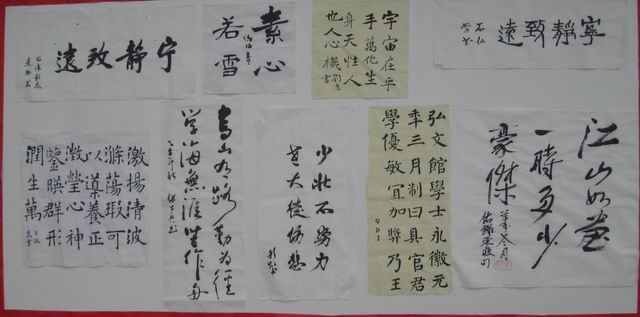 宁静致遠
素心
若雪
宇宙在乎
手萬化生
身天性人
也人心機
寧靜致遠
激揚清波
滌蕩瑕可
以導養正
澂瑩心神
鑒暎群形
潤生萬
书山有路勤为径
学海無涯苦作舟
少壮不努力
老大徒伤悲
弘文館學士永徽元
年三月制曰具官君
學優敏宜加獎乃王
江山如画
一時多少
豪傑